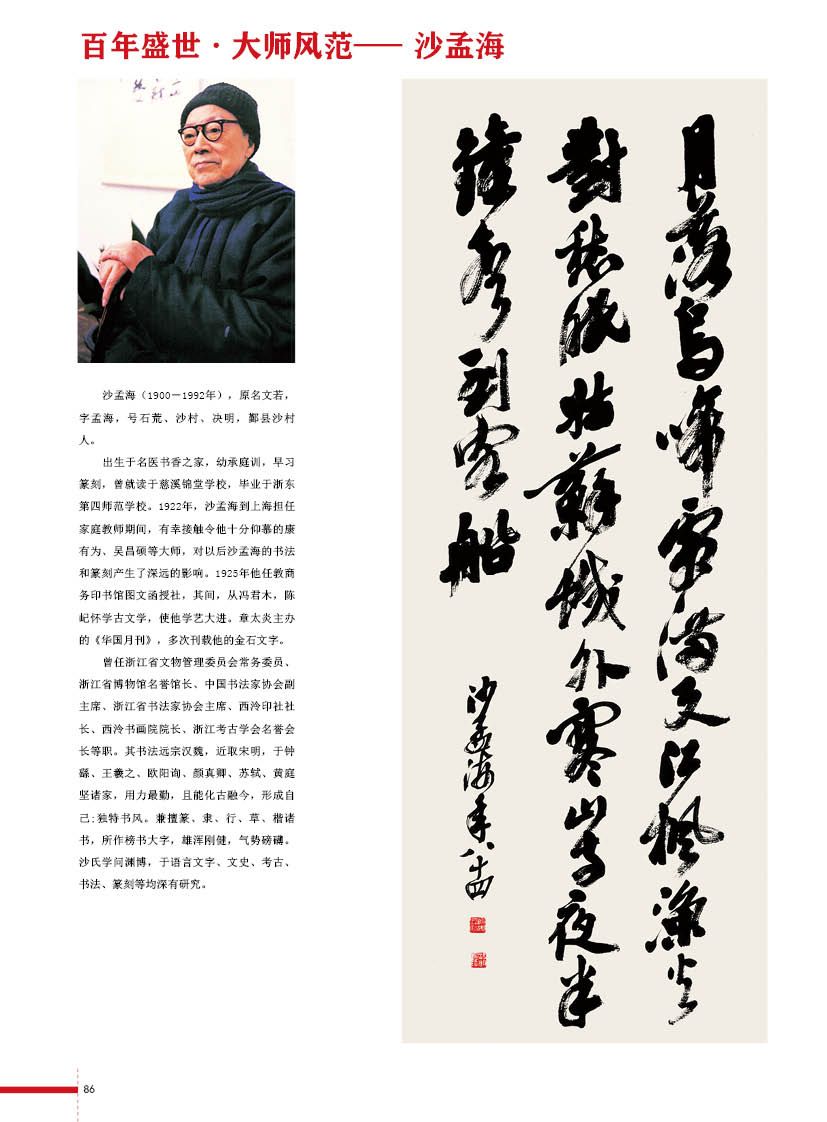 百年盛世·大师风范—— 沙孟海
沙孟海（1900－1992年），原名文若，
字孟海，号石荒、沙村、决明，鄞县沙村
人。
出生于名医书香之家，幼承庭训，早习
篆刻，曾就读于慈溪锦堂学校，毕业于浙东
第四师范学校。1922年，沙孟海到上海担任
家庭教师期间，有幸接触令他十分仰慕的康
有为、吴昌硕等大师，对以后沙孟海的书法
和篆刻产生了深远的影响。1925年他任教商
务印书馆图文函授社，其间，从冯君木，陈
屺怀学古文学，使他学艺大进。章太炎主办
的《华国月刊》，多次刊载他的金石文字。
曾任浙江省文物管理委员会常务委员、
浙江省博物馆名誉馆长、中国书法家协会副
主席、浙江省书法家协会主席、西泠印社社
长、西泠书画院院长、浙江考古学会名誉会
长等职。其书法远宗汉魏，近取宋明，于钟
繇、王羲之、欧阳询、颜真卿、苏轼、黄庭
坚诸家，用力最勤，且能化古融今，形成自
己:独特书风。兼擅篆、隶、行、草、楷诸
书，所作榜书大字，雄浑刚健，气势磅礴。
沙氏学问渊博，于语言文字、文史、考古、
书法、篆刻等均深有研究。
月落烏啼霜滿天江楓漁火
對愁眠姑蘇城外寒山寺夜半
鐘聲到客船
沙孟海年八十四
86